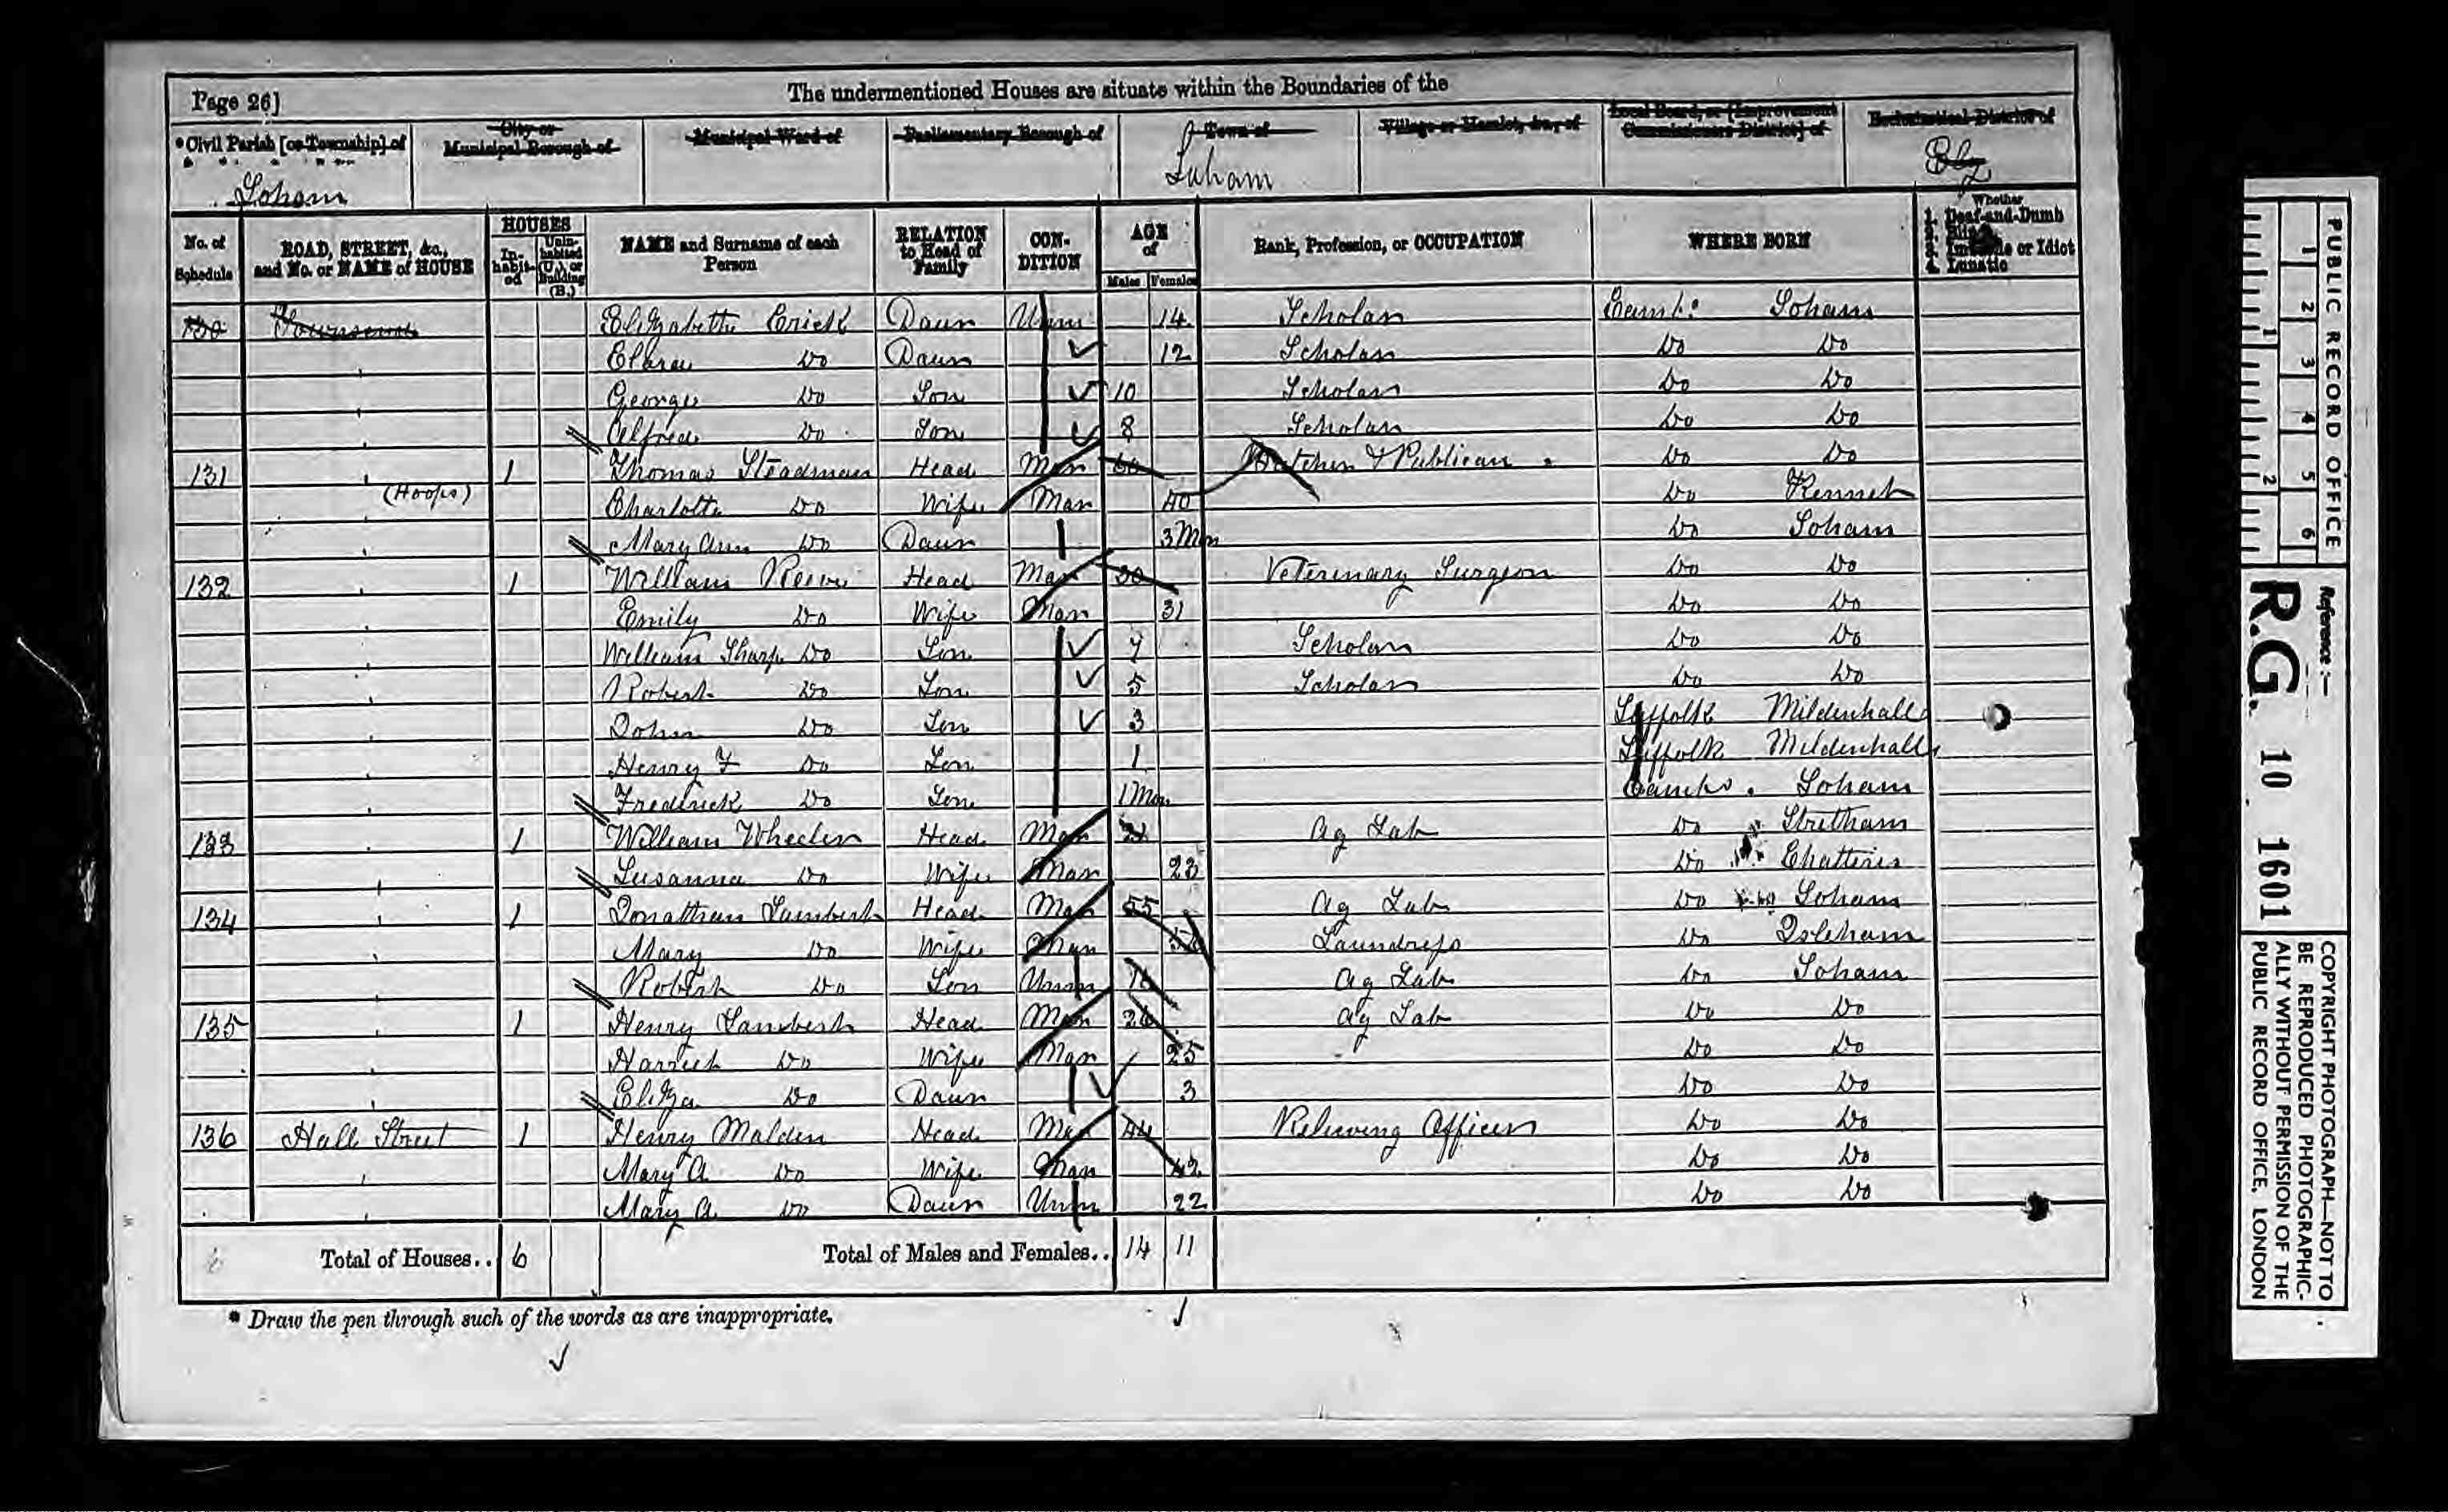 Page 26]
The undermentioned Houses are situate within the Boundaries of the
* Civil Parish [or Township] of
City or Municipal Borough of
Municipal Ward of
Parliamentary Borough of
Town of
Village or Hamlet, &c., of
Local Board, or [Improvement Commissioners District] of
Ecclesiastical District of
Soham
Soham
Ely
No. of Schedule
ROAD, STREET, &c., and No. or NAME of HOUSE
HOUSES
In-habit-ed
Unin-habited (U.), or Building (B.)
NAME and Surname of each Person
RELATION to Head of Family
CON-DITION
AGE of
Males Females
Rank, Profession, or OCCUPATION
WHERE BORN
Whether
1. Deaf-and-Dumb
2. Blind
3. Imbecile or Idiot
4. Lunatic
130 Townsend Elizabeth Daur Unm 14 Scholar Camb: Soham
Clara Do Daur 12 Scholar Do Do
George Do Son 10 Scholar Do Do
Alfred Do Son 8 Scholar Do Do
131 1 Thomas Steadman Head Mar 60 Butcher & Publican Do Do
(Hoops) Charlotte Do Wife Mar 40 Do Kennet
Mary Ann Do Daur 3 Mon Do Soham
132 1 William Head Mar 30 Veterinary Surgeon Do Do
Emily Do Wife Mar 31 Do Do
William Sharp Do Son 7 Scholar Do Do
Robert Do Son 5 Scholar Do Do
John Do Son 3 Suffolk Mildenhall
Henry F Do Son 1 Suffolk Mildenhall
Frederick Do Son 1 Mon Cambs. Soham
133 1 William Wheeler Head Mar Ag Lab Do Stretham
Susanna Do Wife Mar 23 Do Chatteris
134 1 Jonathan Lambert Head Mar 55 Ag Lab Do Soham
Mary Do Wife Mar Laundress Do Isleham
Robert Do Son Unm Ag Lab Do Soham
135 1 Henry Lambert Head Mar 26 Ag Lab Do Do
Harriet Do Wife Mar 25 Do Do
Eliza Do Daur 3 Do Do
136 Hall Street 1 Henry Malden Head Mar 44 Relieving Officer Do Do
Mary A. Do Wife Mar 42 Do Do
Mary A. Do Daur Unm 22 Do Do
Total of Houses.. 6
Total of Males and Females.. 14 11
* Draw the pen through such of the words as are inappropriate.
PUBLIC RECORD OFFICE
1 2 3 4 5 6
1 2
Reference :—
R.G. 10 1601
COPYRIGHT PHOTOGRAPH—NOT TO
BE REPRODUCED PHOTOGRAPHIC-
ALLY WITHOUT PERMISSION OF THE
PUBLIC RECORD OFFICE, LONDON